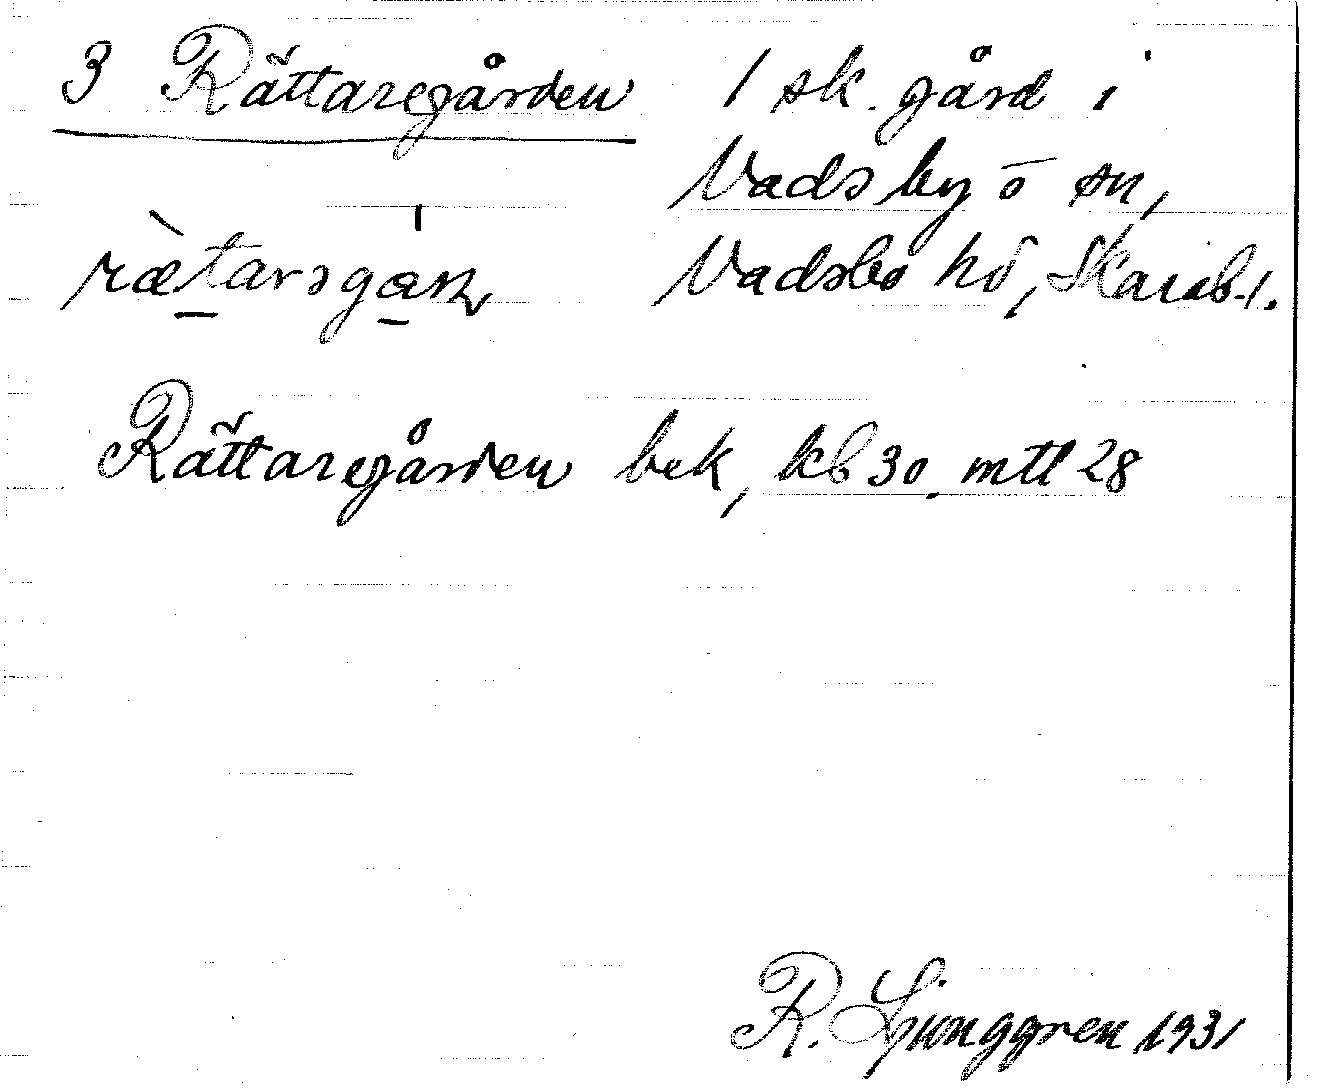 3 Rättaregården 1 sk. gård i
Vadsbyō sn,
rætarəgaɳ Vadsbo hd, Skarab.l.
Rättaregården bek, kb 30. mtl 28
R. Ljunggren 1931